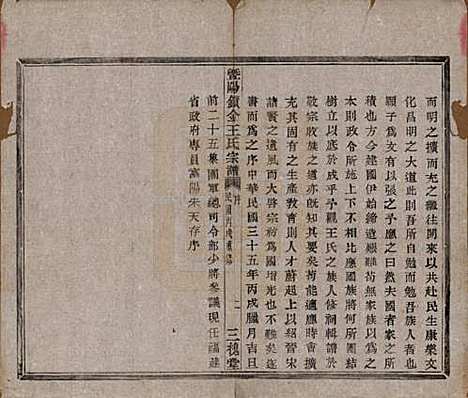 而明之擴而充之繼往開來以共赴民生康樂文
化昌明之大道此則吾所自勉而勉吾族人者
願子爲文有以張之予曰然夫國者家之所
積也方今建國伊始締造維艱苟族以爲之
本則政令所施上下不相比應國族將何所團以
樹立耶故於成乎予觀王氏之族人倅修輯譜於
敬宗收族之道亦既知其要矣苟能適應時會
充其固有之生產教育則人才蔚起上以紹晉宋
諸賢之遺風而大啓宗祊爲國增光也不難矣遂
書而爲之序中華民國三十五年丙戌臘月吉旦
前二十五集團軍總司令部少將參議現任福建
省政府專員富陽朱天存序
暨陽鎮金王氏宗譜
序
民國丙戌重修
二
三槐堂